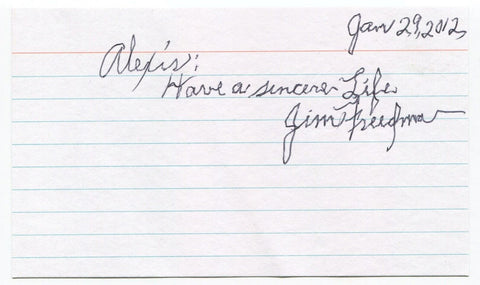 Jan 29, 2012
Alexis:
Have a sincere Life
Jim Freedman